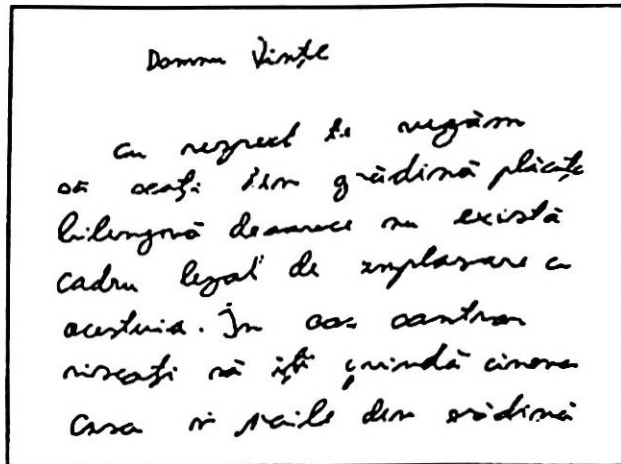 Domnu Vințe
cu respect te rugăm
să scoți din grădină plăcuțe
bilingvă deoarece nu există
cadru legal de amplasare a
acestuia. În caz contrar
riscați să iți prindă cineva
casa și oaile din grădină